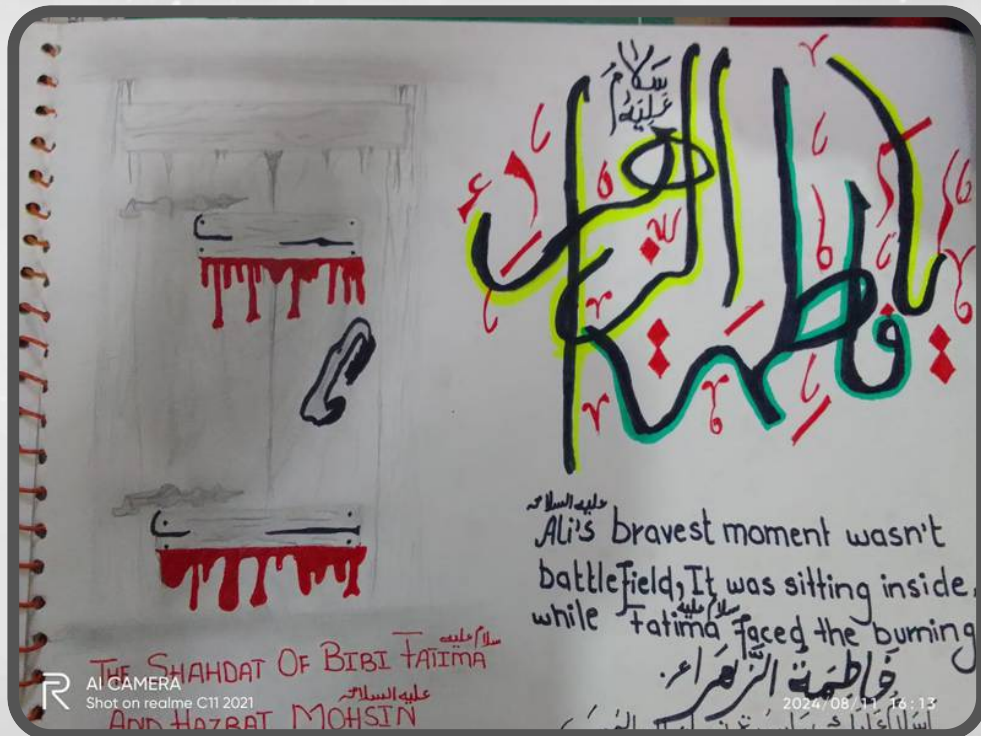 سلام عليه
يا فاطمة الزهراء
عليه السلام
Ali's bravest moment wasn't
battlefield, It was sitting inside,
while Fatima سلام عليه faced the burning
فَاطِمَةُ الزَّهرَاء
THE SHAHDAT OF BIBI FATIMA سلام عليه
AND HAZRAT MOHSIN عليه السلام
AI CAMERA
Shot on realme C11 2021
2024/08/11 16:13